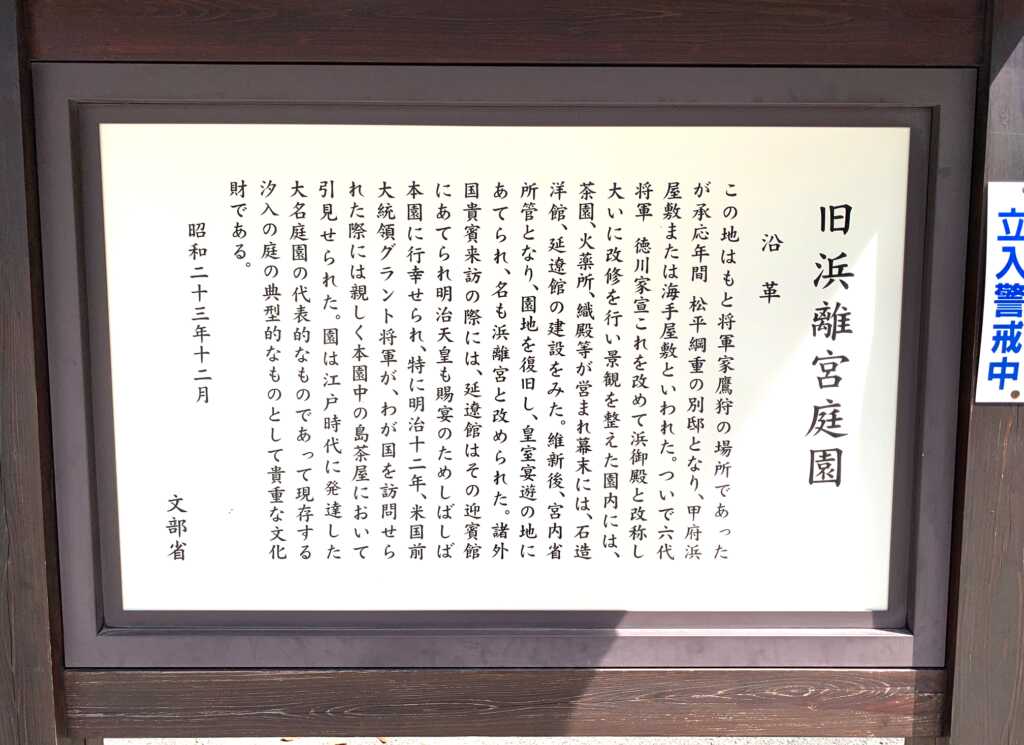 旧浜離宮庭園
沿革
この地はもと将軍家鷹狩の場所であった
が承応年間 松平綱重の別邸となり、甲府浜
屋敷または海手屋敷といわれた。ついで六代
将軍 徳川家宣これを改めて浜御殿と改称し
大いに改修を行い景観を整えた園内には、
茶園、火薬所、織殿等が営まれ幕末には、石造
洋館、延遼館の建設をみた。維新後、宮内省
所管となり、園地を復旧し、皇室宴遊の地に
あてられ、名も浜離宮と改められた。諸外
国貴賓来訪の際には、延遼館はその迎賓館
にあてられ明治天皇も賜宴のためしばしば
本園に行幸せられ、特に明治十二年、米国前
大統領グラント将軍が、わが国を訪問せら
れた際には親しく本園中の島茶屋において
引見せられた。園は江戸時代に発達した
大名庭園の代表的なものであって現存する
汐入の庭の典型的なものとして貴重な文化
財である。
昭和二十三年十二月
文部省
立入警戒中